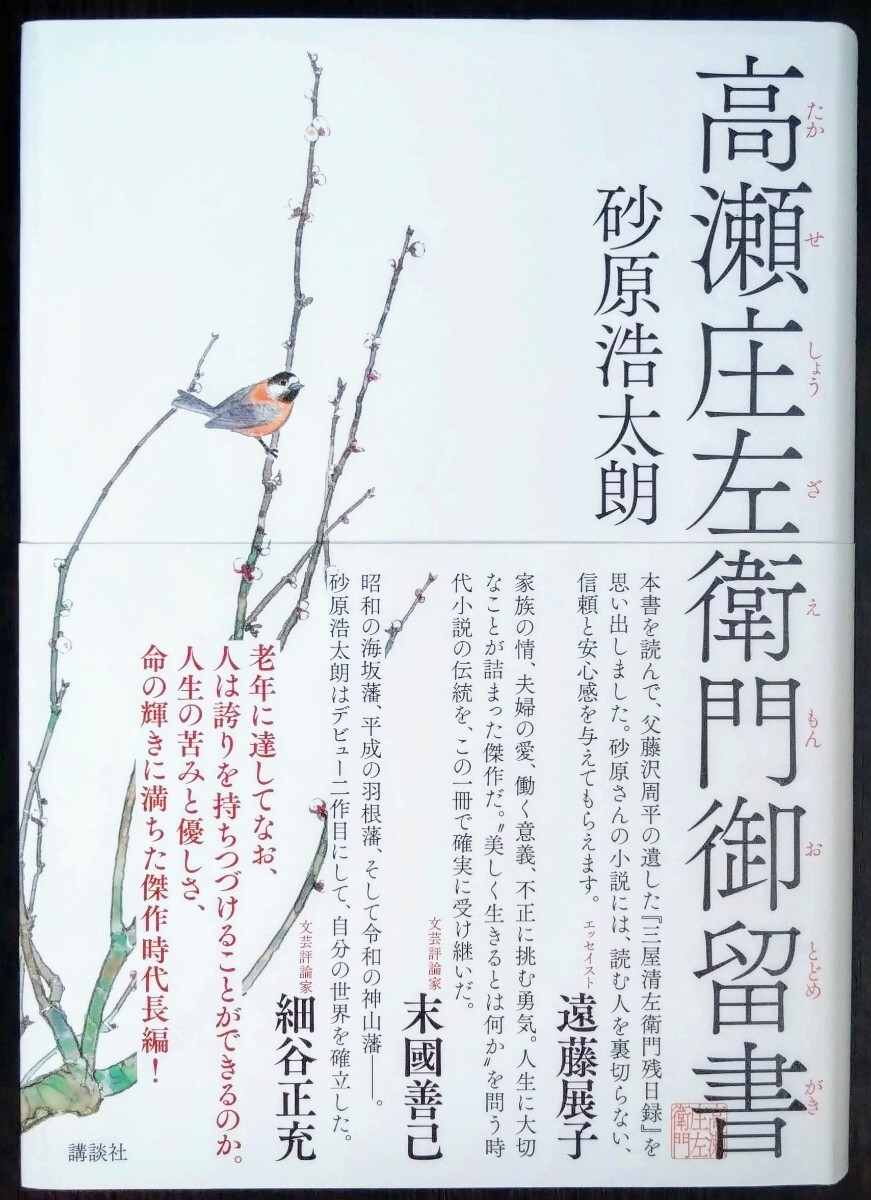 高瀬庄左衛門御留書
たかせしょうざえもんおとどめがき
砂原浩太朗
本書を読んで、父藤沢周平の遺した『三屋清左衛門残日録』を
思い出しました。砂原さんの小説には、読む人を裏切らない、
信頼と安心感を与えてもらえます。
エッセイスト
遠藤展子
家族の情、夫婦の愛、働く意義、不正に挑む勇気。人生に大切
なことが詰まった傑作だ。〝美しく生きるとは何か〟を問う時
代小説の伝統を、この一冊で確実に受け継いだ。
文芸評論家
末國善己
昭和の海坂藩、平成の羽根藩、そして令和の神山藩――。
砂原浩太朗はデビュー二作目にして、自分の世界を確立した。
文芸評論家
細谷正充
老年に達してなお、
人は誇りを持ちつづけることができるのか。
人生の苦みと優しさ、
命の輝きに満ちた傑作時代長編!
講談社
高瀬
庄左
衛門